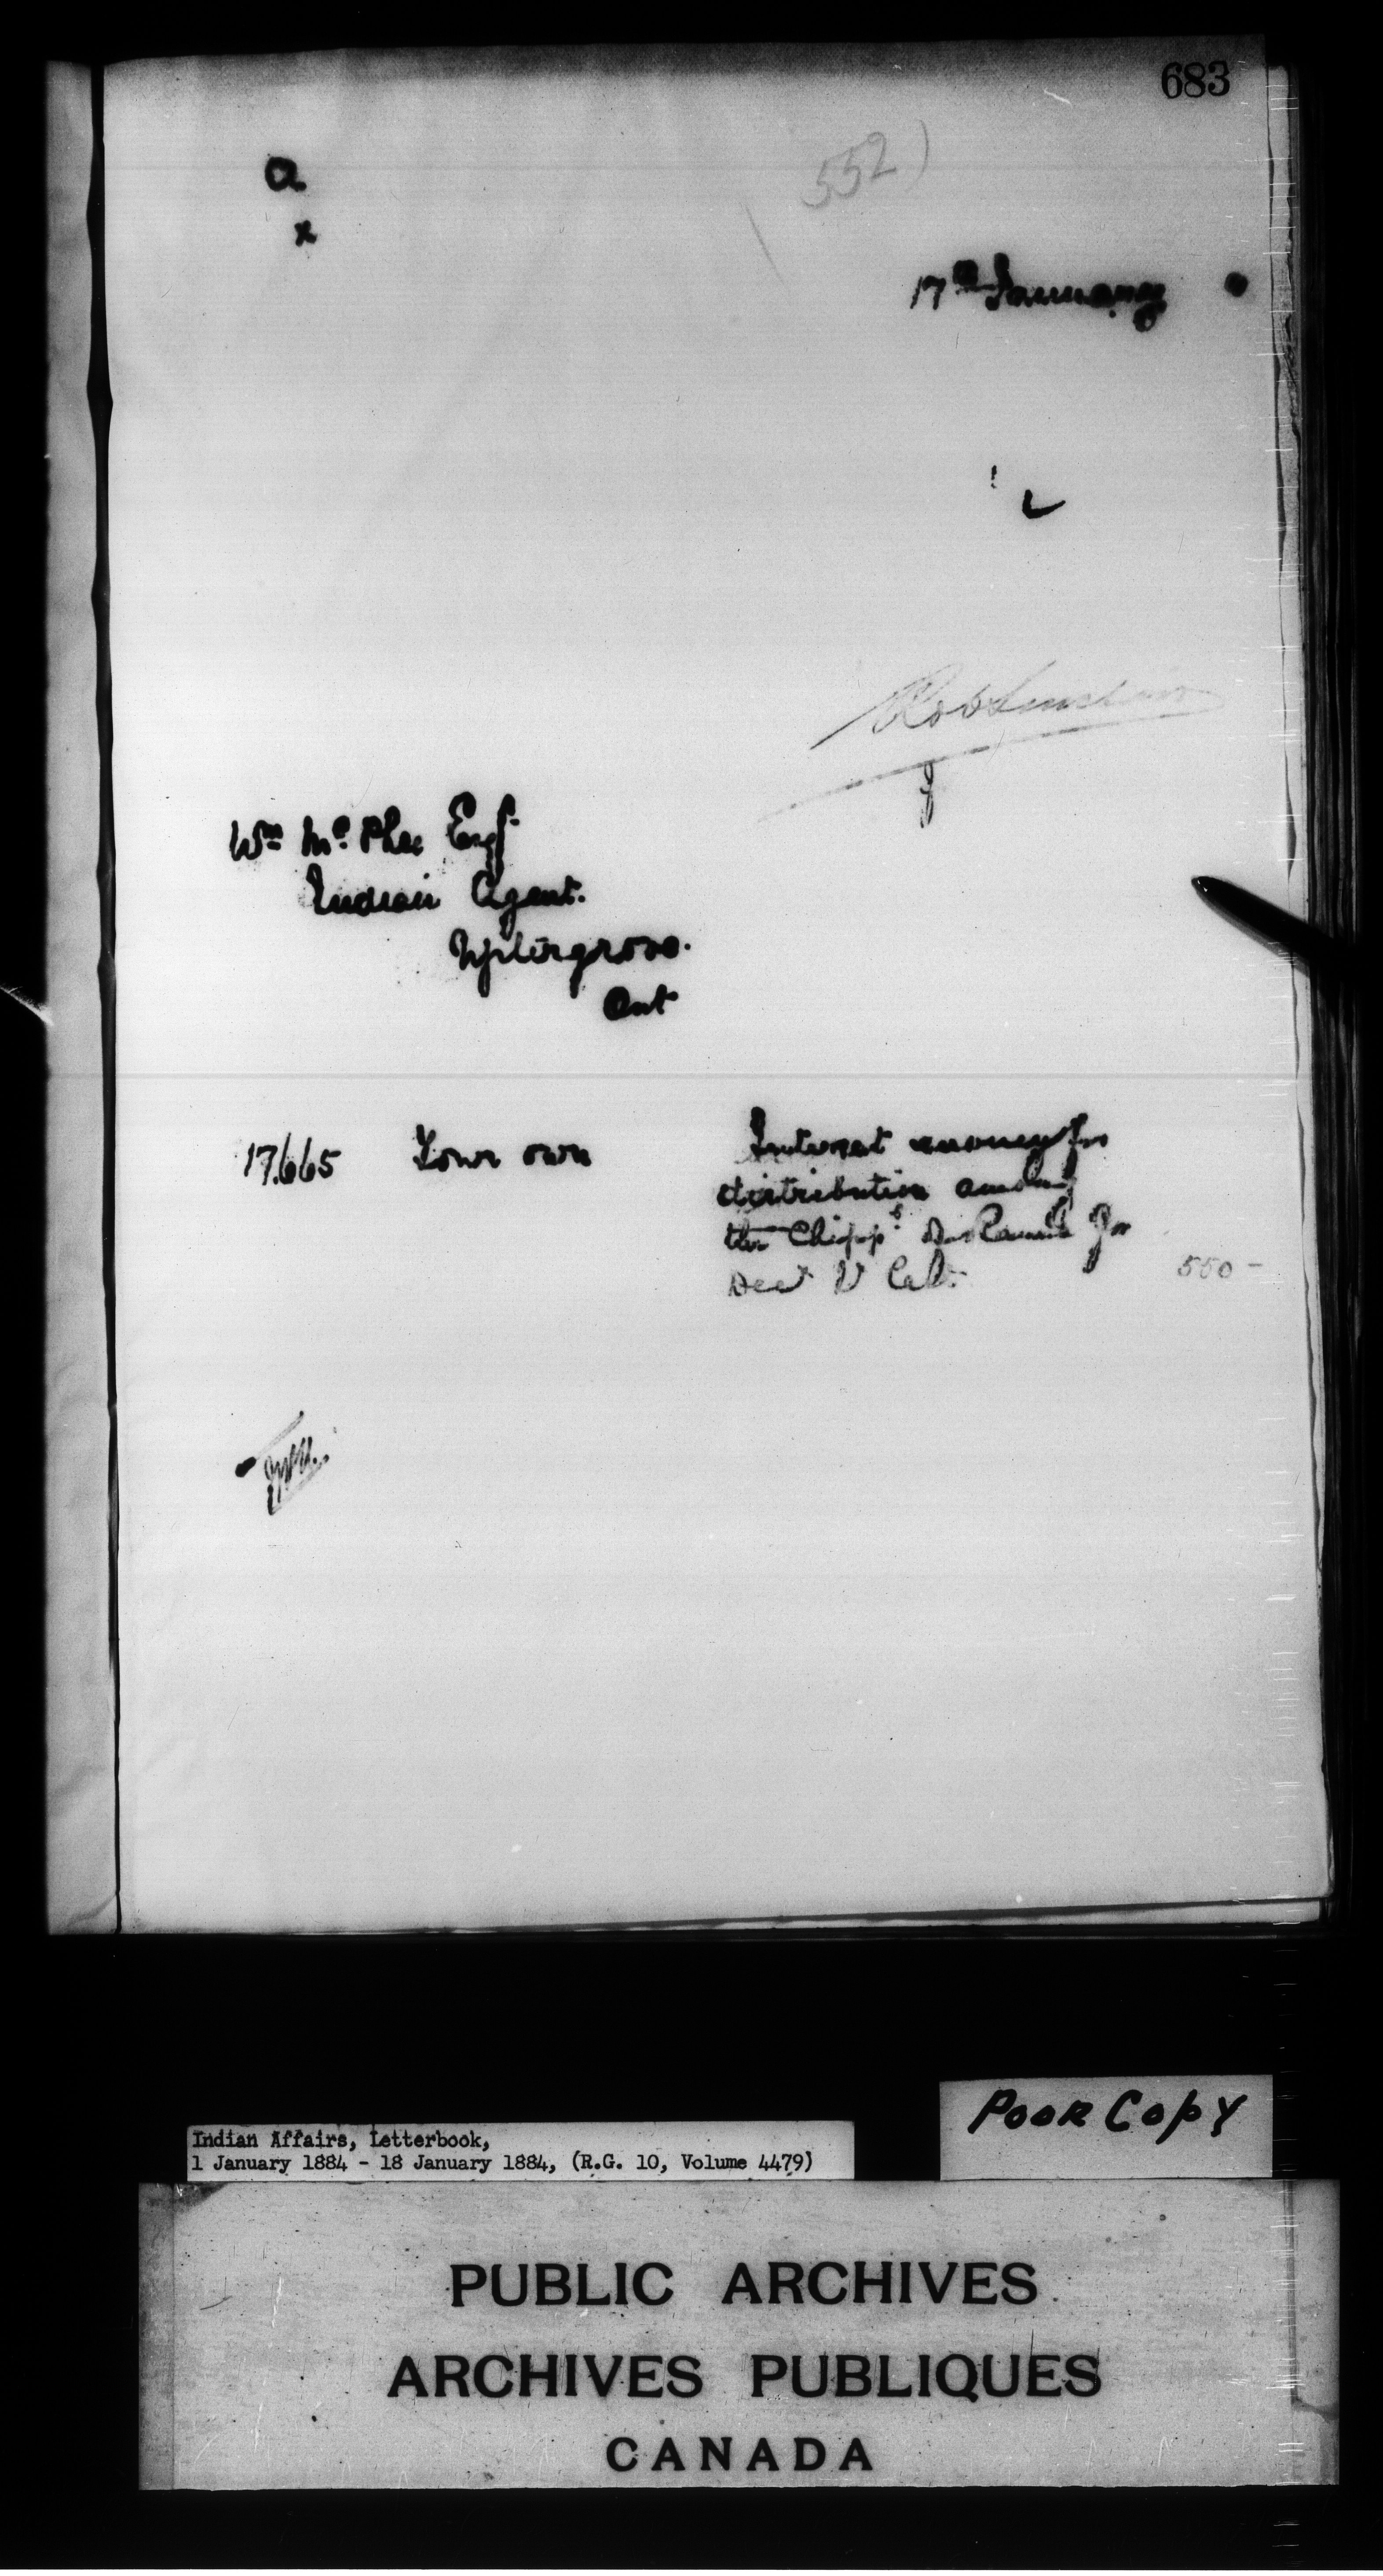 683
552)
a
x
17th January
Wm McPhee Esq
Indian Agent.
Uptergrove.
Ont
17.665 Your own Interest money for
distribution among
the Chipps of Rama for
Decr 1/2 Cal. 550 -
Poor Copy
Indian Affairs, Letterbook,
1 January 1884 - 18 January 1884, (R.G. 10, Volume 4479)
PUBLIC ARCHIVES
ARCHIVES PUBLIQUES
CANADA